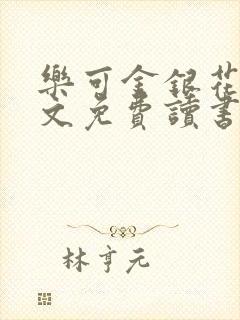 樂可金銀花
文免費讀書
林亨元